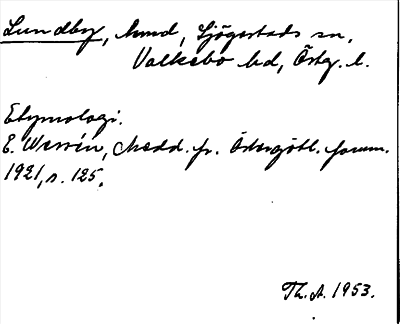 Lundby, hmd, Sjögestads sn,
Valkebo hd, Östg. l.
Etymologi.
E. Wessén, Medd. fr. Östergötl. fornm.
1921, s. 125.
Th. A. 1953.